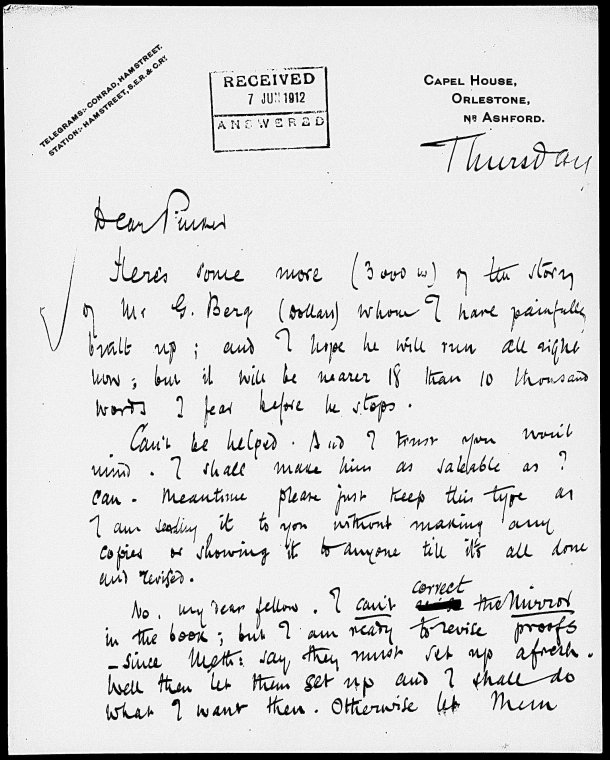 TELEGRAMS:- CONRAD, HAMSTREET.
STATION:- HAMSTREET, S.E.R. & C.RY.
RECEIVED
7 JUN 1912
ANSWERED
CAPEL HOUSE,
ORLESTONE,
NR ASHFORD.
Thursday
Dear Pinker
Here's some more (3000 w) of the story
of Mr G. Berg (Dollars) whom I have painfully
built up; and I hope he will run all right
now; but it will be nearer 18 than 10 thousand
words I fear before he stops.
Can't be helped. And I trust you won't
mind. I shall make him as saleable as I
can. Meantime please just keep this type as
I am sending it to you without making any
copies or showing it to anyone till it's all done
and revised.
No, my dear fellow. I can't correct the Mirror
in the book; but I am ready to revise proofs
– since Meth: say they must set up afresh.
Well then let them set up and I shall do
what I want then. Otherwise let them